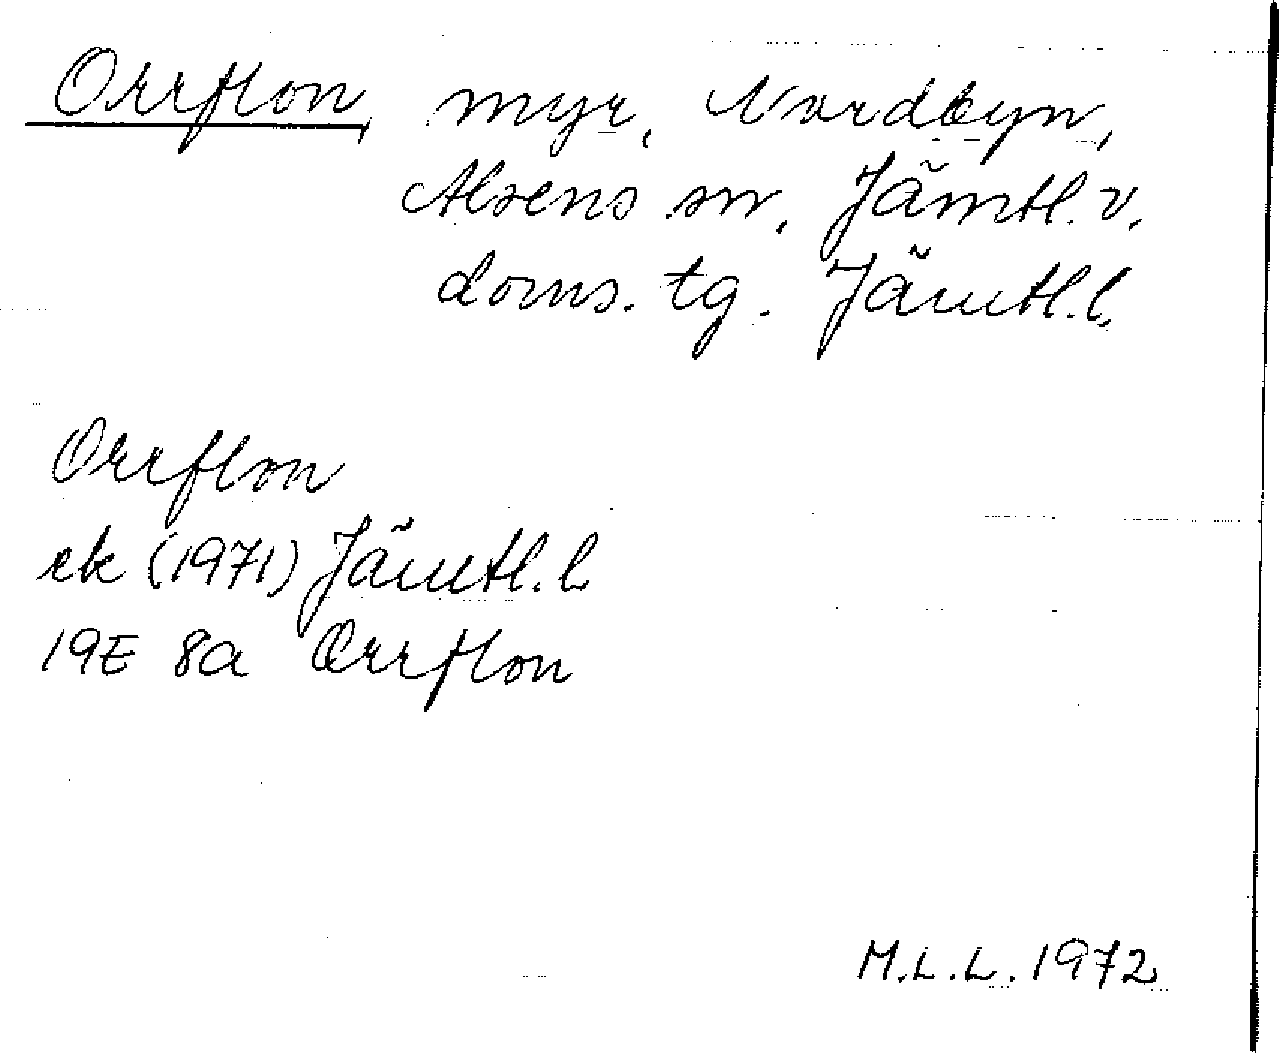 Orrflon, myr, Nordbyn,
Alsens sn, Jämtl. v.
doms. tg. Jämtl. l.
Orrflon
ek (1971) Jämtl. l.
19E 8a Orrflon
M.L.L. 1972